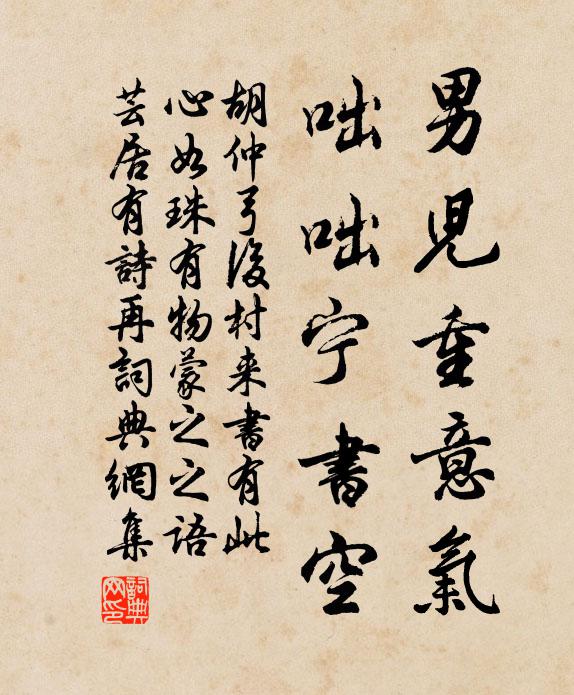 男兒重意氣
咄咄宁書空
胡仲弓後村来書有此
心如珠有物蒙之之語
芸居有詩再詞典網集
詞典网印